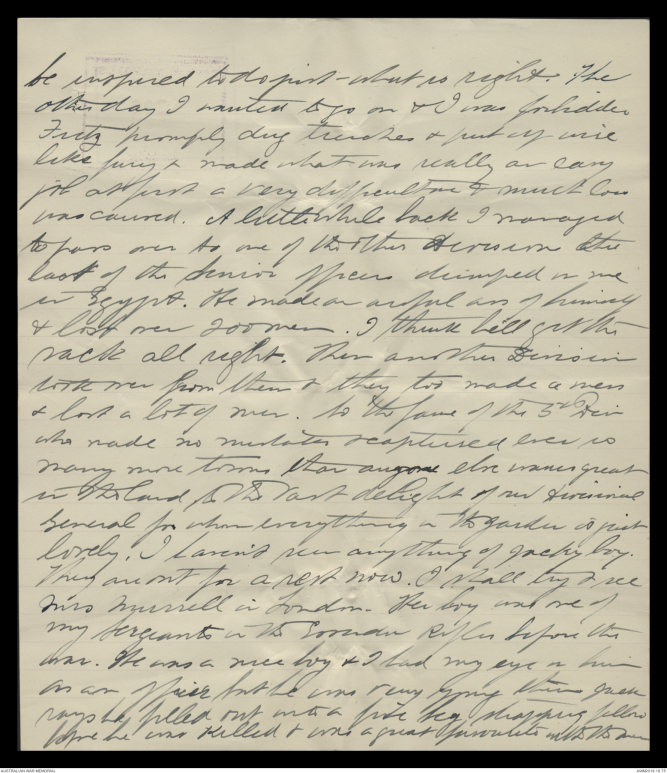 be inspired to do just what is right. The
other day I wanted to go on & I was forbidden
Fritz promply dug trenches & put up wire
like fury & made what was really an easy
job at first a very difficult one & much loss
was caused. A little while back I managed
to pass over to one of the other Divisions the
last of the Senior officers dumped on me
in Egypt. He made an awful ass of himself
& lost over 200 men. I think he'll get the
sack all right. Then another Division
took over from them & they too made a mess
& lost a lot of men. So the fame of the 5th Div
who made no mistakes & captured ever so
many more towns than anyone else waxes great
in the land to the vast delight of our divisional
General for whom everything in the garden is just
lovely. I haven't seen anything of Jacky boy.
They are out for a rest now. I shall try & see
Mrs Murrell in London. Her boy was one of
my Sergeants in the Essendon Rifles before the
war. He was a nice boy & I had my eye on him
as an officer but he was very young then. Jack
says he filled out into a fine big strapping fellow
before he was killed & was a great favourite with the men
AUSTRALIAN WAR MEMORIAL